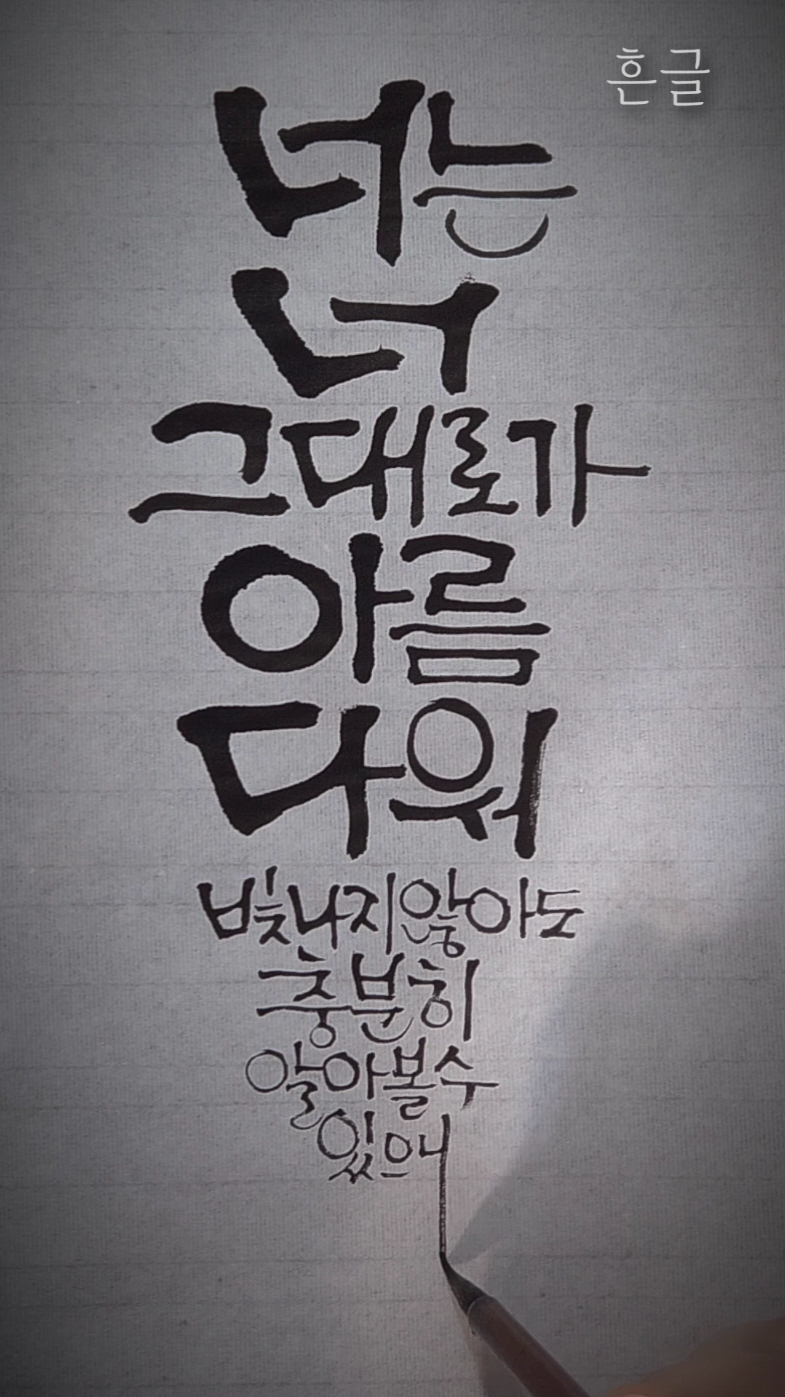 흔글
너는
너
그대로가
아름
다워
빛나지않아도
충분히
알아볼수
있으니